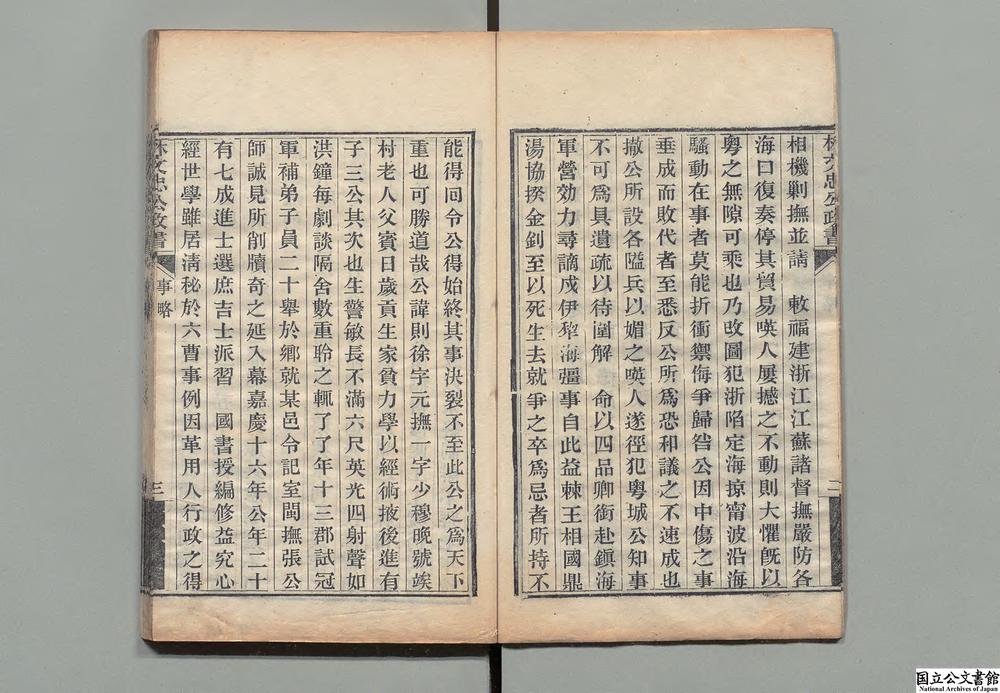 林文忠公政書
二
相機剿撫並請 敕福建浙江江蘇諸督撫嚴防各
海口復奏停其貿易㖟人屢撼之不動則大懼旣以
粵之無隙可乘也乃改圖犯浙陷定海掠甯波沿海
騷動在事者莫能折衝禦侮爭歸咎公因中傷之事
垂成而敗代者至悉反公所爲恐和議之不速成也
撤公所設各隘兵以媚之㖟人遂徑犯粵城公知事
不可爲具遺疏以待圍解 命以四品卿銜赴鎭海
軍營効力尋謫戍伊犂海疆事自此益棘王相國鼎
湯協揆金釗至以死生去就爭之卒爲忌者所持不
能得囘令公得始終其事決裂不至此公之爲天下
重也可勝道哉公諱則徐字元撫一字少穆晚號竢
村老人父賓日歲貢生家貧力學以經術掖後進有
子三公其次也生警敏長不滿六尺英光四射聲如
洪鐘每劇談隔舍數重聆之輒了了年十三郡試冠
軍補弟子員二十舉於鄉就某邑令記室閩撫張公
師誠見所削牘奇之延入幕嘉慶十六年公年二十
有七成進士選庶吉士派習 國書授編修益究心
經世學雖居淸秘於六曹事例因革用人行政之得
林文忠公政書
事略
三
国立公文書館
National Archives of Japan